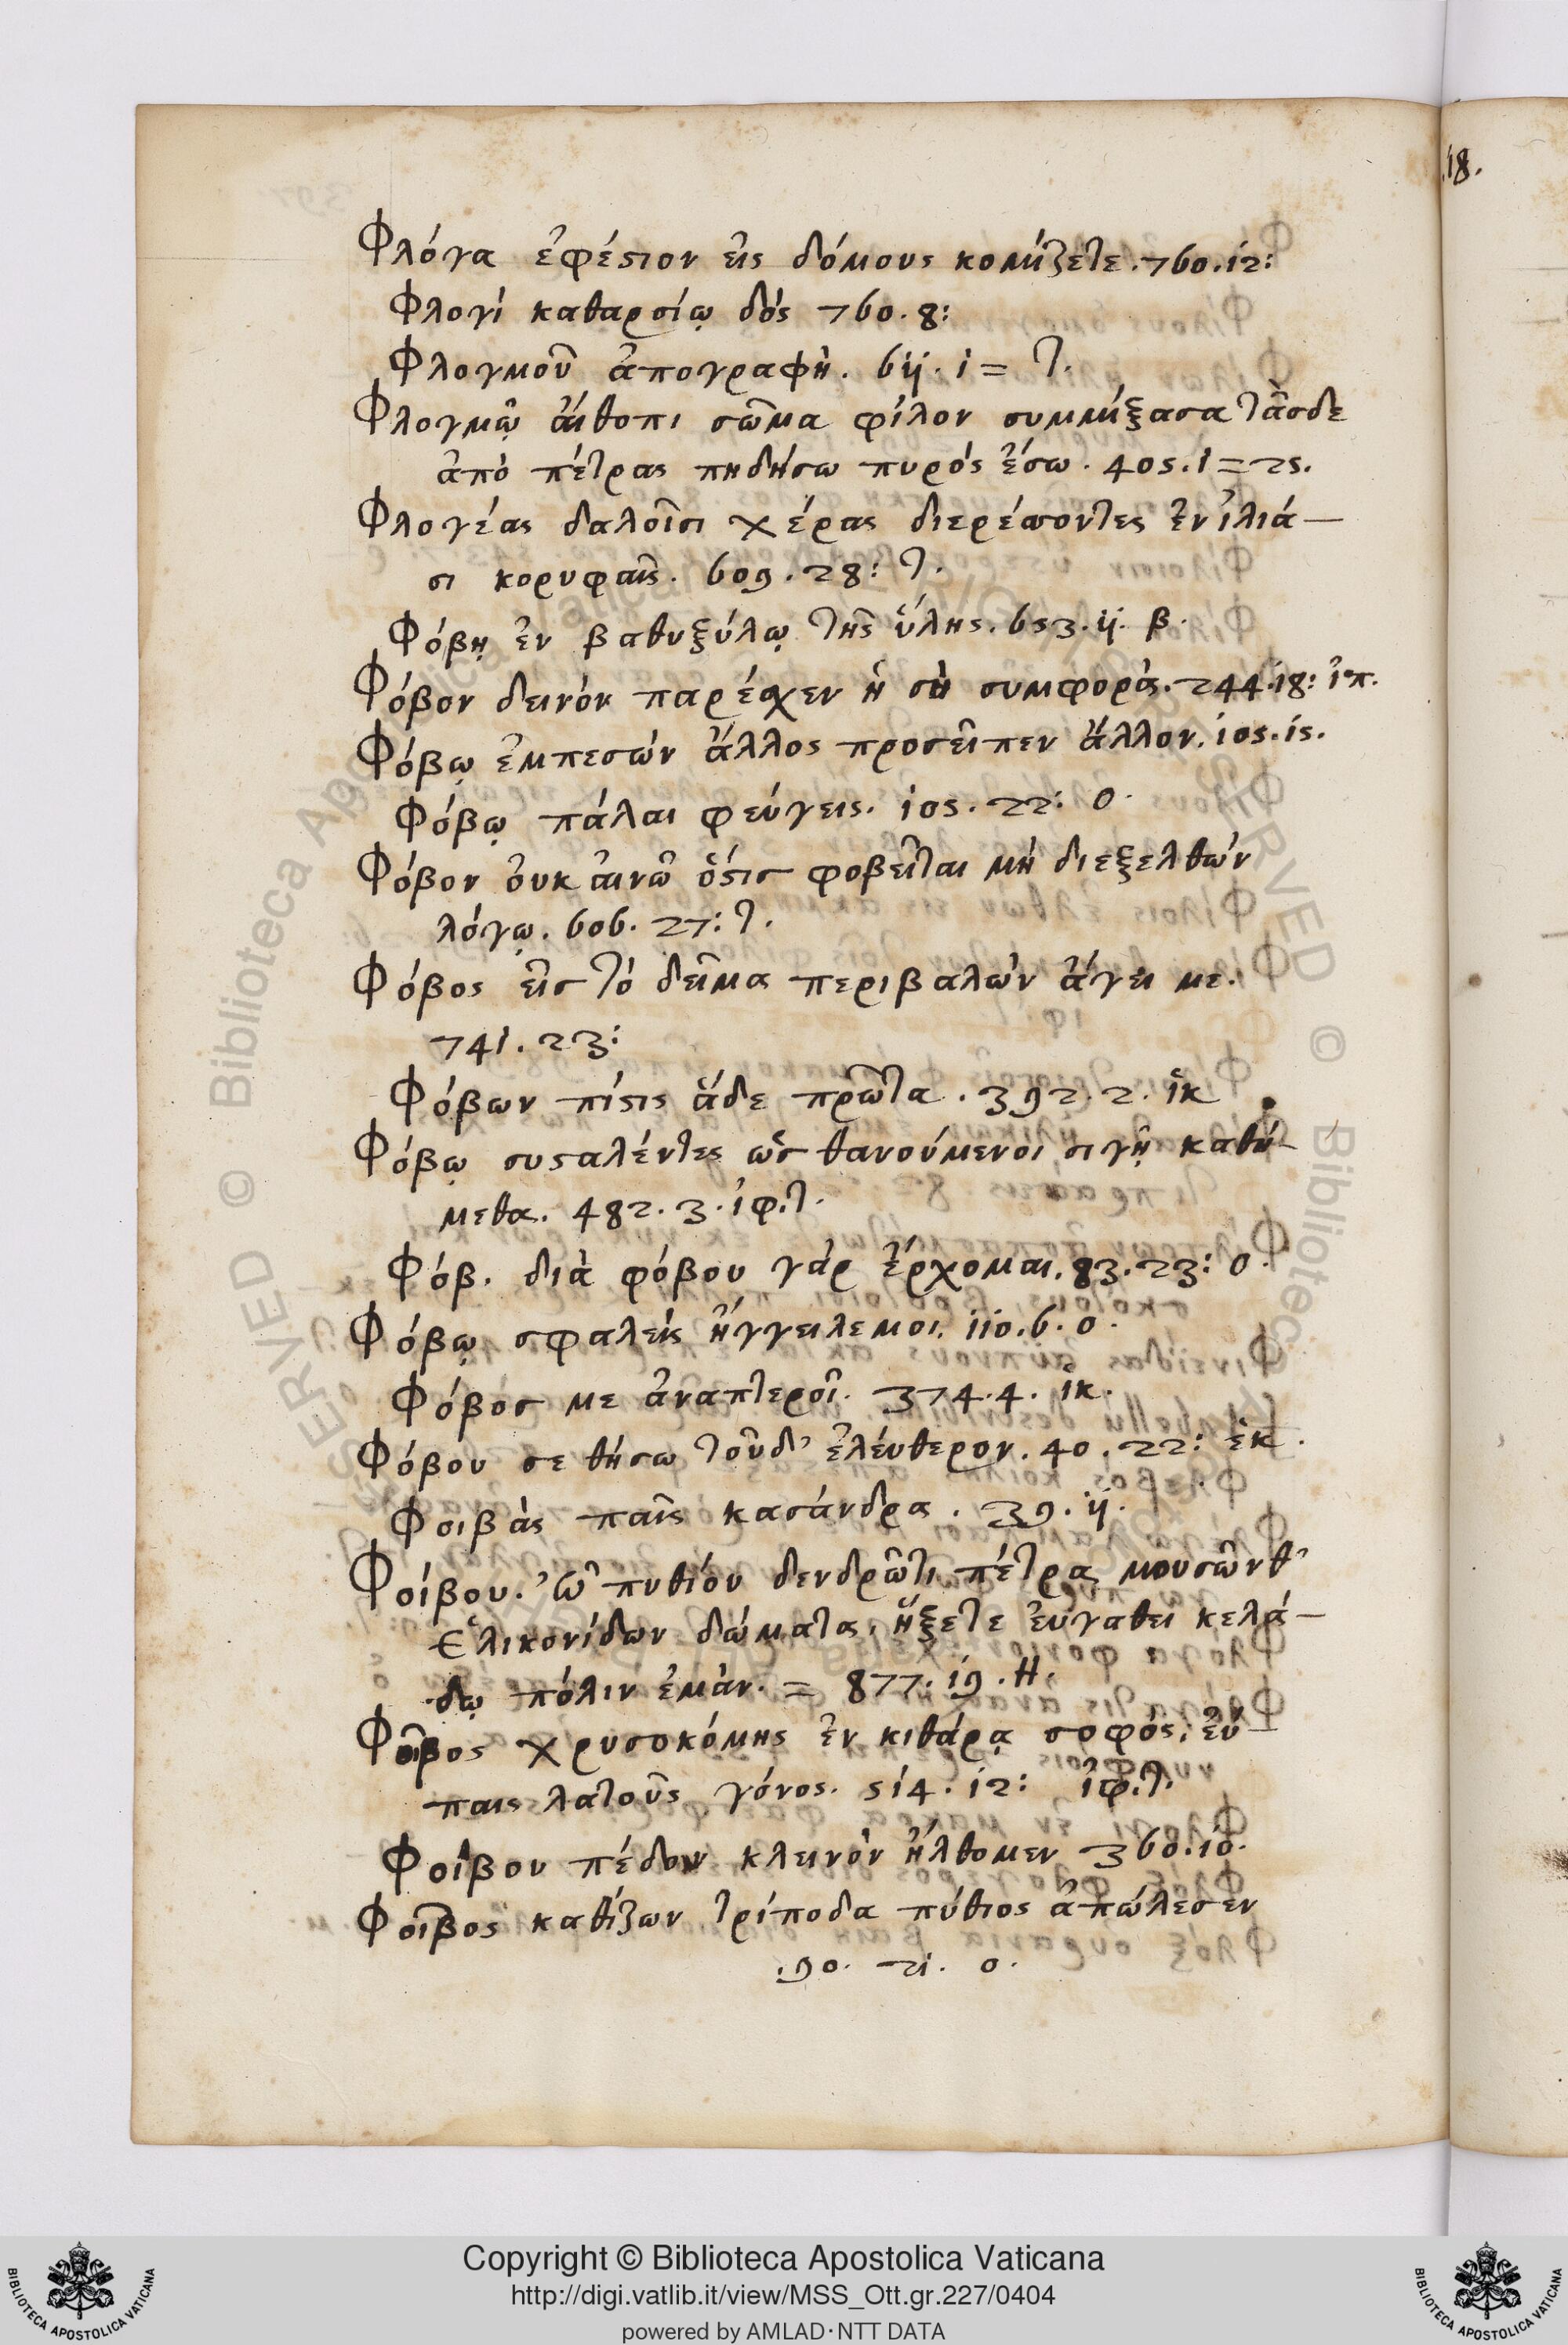 .18.
Φλόγα ἐφέϛιον εἰς δόμους κομίζετε. 760. 12:
Φλογὶ καθαρσίῳ δὸς 760. 8:
Φλογμοῦ ἀπογραφή. 611. 1 = τ.
Φλογμῷ αἴθοπι σῶμα φίλον συμμίξασα τᾶσδε
ἀπὸ πέτρας πηδήσω πυρὸς ἔσω. 405. 1 = 25.
Φλογέας δαλοῖσι χέρας διερέσσοντες ἐν ἰλιά—
σι κορυφαῖς. 609. 28: τ.
Φόβη ἐν βαθυξύλῳ τῆς ὕλης. 653. 11. β.
Φόβον δεινὸν παρέσχεν ἡ σὴ συμφορά. 244. 18: ἱπ.
Φόβῳ ἐμπεσὼν ἄλλος προσεῖπεν ἄλλον. 105. 15.
Φόβῳ πάλαι φεύγεις. 105. 22: ο.
Φόβον οὐκ αἰνῶ ὅϛις φοβεῖται μὴ διεξελθὼν
λόγῳ. 606. 27: τ.
Φόβος εἰς τὸ δεῖμα περιβαλὼν ἄγει με.
741. 23:
Φόβων πίϛις ἅδε πρῶτα. 392. 2. ἱκ
Φόβῳ συϛαλέντες ὡς θανούμενοι σιγῇ καθή—
μεθα. 482. 3. ἰφ. τ.
Φόβ. διὰ φόβου γὰρ ἔρχομαι. 83. 23: ο.
Φόβῳ σφαλεὶς ἤγγειλε μοι. 110. 6. ο.
Φόβος με ἀναπτεροῖ. 374. 4. ἱκ.
Φόβου σε θήσω τοῦδ’ ἐλεύθερον. 40. 22: ἑκ.
Φοιβὰς παῖς κασάνδρα. 39. 11.
Φοίβου. Ὦ πυθίου δενδρῶτι πέτρα μουσῶν θ’
Ἑλικονίδων δώματα, ἥξετε εὐγαθεῖ κελά—
δῳ πόλιν ἐμάν. = 877. 19. Η.
Φοῖβος χρυσοκόμης ἐν κιθάρᾳ σοφός, εὔ—
παις λατοῦς γόνος. 514. 12: ἰφ. τ.
Φοίβου πέδον κλεινὸν ἤλθομεν 360. 10.
Φοῖβος καθίζων τρίποδα πύθιος ἀπώλεσεν
.90. 21. ο.
© Biblioteca Apostolica Vaticana
Copyright © Biblioteca Apostolica Vaticana
http://digi.vatlib.it/view/MSS_Ott.gr.227/0404
powered by AMLAD·NTT DATA
BIBLIOTECA APOSTOLICA VATICANA
BIBLIOTECA APOSTOLICA VATICANA